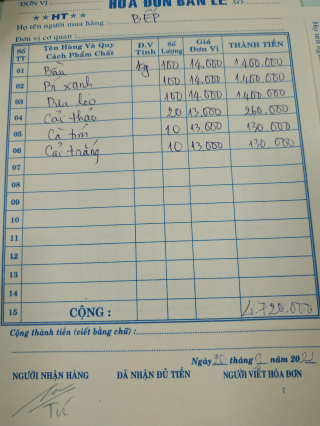 ĐƠN VỊ : HÓA ĐƠN BÁN LẺ SỐ
★★ HT ★★
Họ tên người mua hàng : BẾP
Đơn vị cơ quan :
Số TT Tên Hàng Và Quy Cách Phẩm Chất Đ.V Tính Số Lượng Giá Đơn Vị THÀNH TIỀN
01 Bầu kg 100 14.000 1.400.000
02 Bí xanh 100 14.000 1.400.000
03 Dưa leo 100 14.000 1.400.000
04 Cải thảo 20 13.000 260.000
05 Cà tím 10 13.000 130.000
06 Cải trắng 10 13.000 130.000
07
08
09
10
11
12
13
14
15 CỘNG : 4.720.000
Cộng thành tiền (viết bằng chữ) :
Ngày 20 tháng 9 năm 20
NGƯỜI NHẬN HÀNG ĐÃ NHẬN ĐỦ TIỀN NGƯỜI VIẾT HÓA ĐƠN
Tú